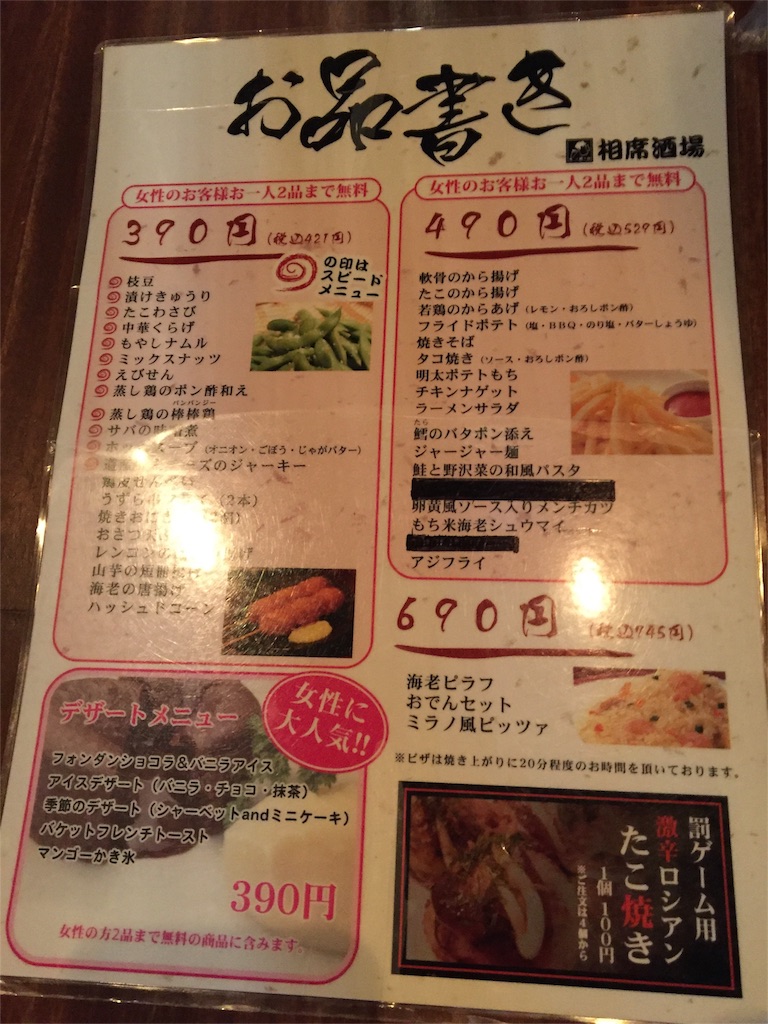 お品書き
相席酒場
女性のお客様お一人2品まで無料
390円(税込421円)
の印は
スピード
メニュー
枝豆
漬けきゅうり
たこわさび
中華くらげ
もやしナムル
ミックスナッツ
えびせん
蒸し鶏のポン酢和え
バンバンジー
蒸し鶏の棒棒鶏
サバの味噌煮
スープ(オニオン・ごぼう・じゃがバター)
ーズのジャーキー
鶏皮せんべい
うずら串フライ(2本)
焼きおに
おさつ
レンコンの
山芋の短冊
海老の唐揚げ
ハッシュドコーン
女性に
大人気!!
デザートメニュー
フォンダンショコラ&バニラアイス
アイスデザート(バニラ・チョコ・抹茶)
季節のデザート(シャーベットandミニケーキ)
バケットフレンチトースト
マンゴーかき氷
390円
女性の方2品まで無料の商品に含みます。
女性のお客様お一人2品まで無料
490円(税込529円)
軟骨のから揚げ
たこのから揚げ
若鶏のからあげ(レモン・おろしポン酢)
フライドポテト(塩・BBQ・のり塩・バターしょうゆ)
焼きそば
タコ焼き(ソース・おろしポン酢)
明太ポテトもち
チキンナゲット
ラーメンサラダ
たら
鱈のバタポン添え
ジャージャー麺
鮭と野沢菜の和風パスタ
卵黄風ソース入りメンチカツ
もち米海老シュウマイ
アジフライ
690円(税込745円)
海老ピラフ
おでんセット
ミラノ風ピッツァ
※ピザは焼き上がりに20分程度のお時間を頂いております。
罰ゲーム用
激辛ロシアン
たこ焼き
1個 100円
※ご注文は4個から